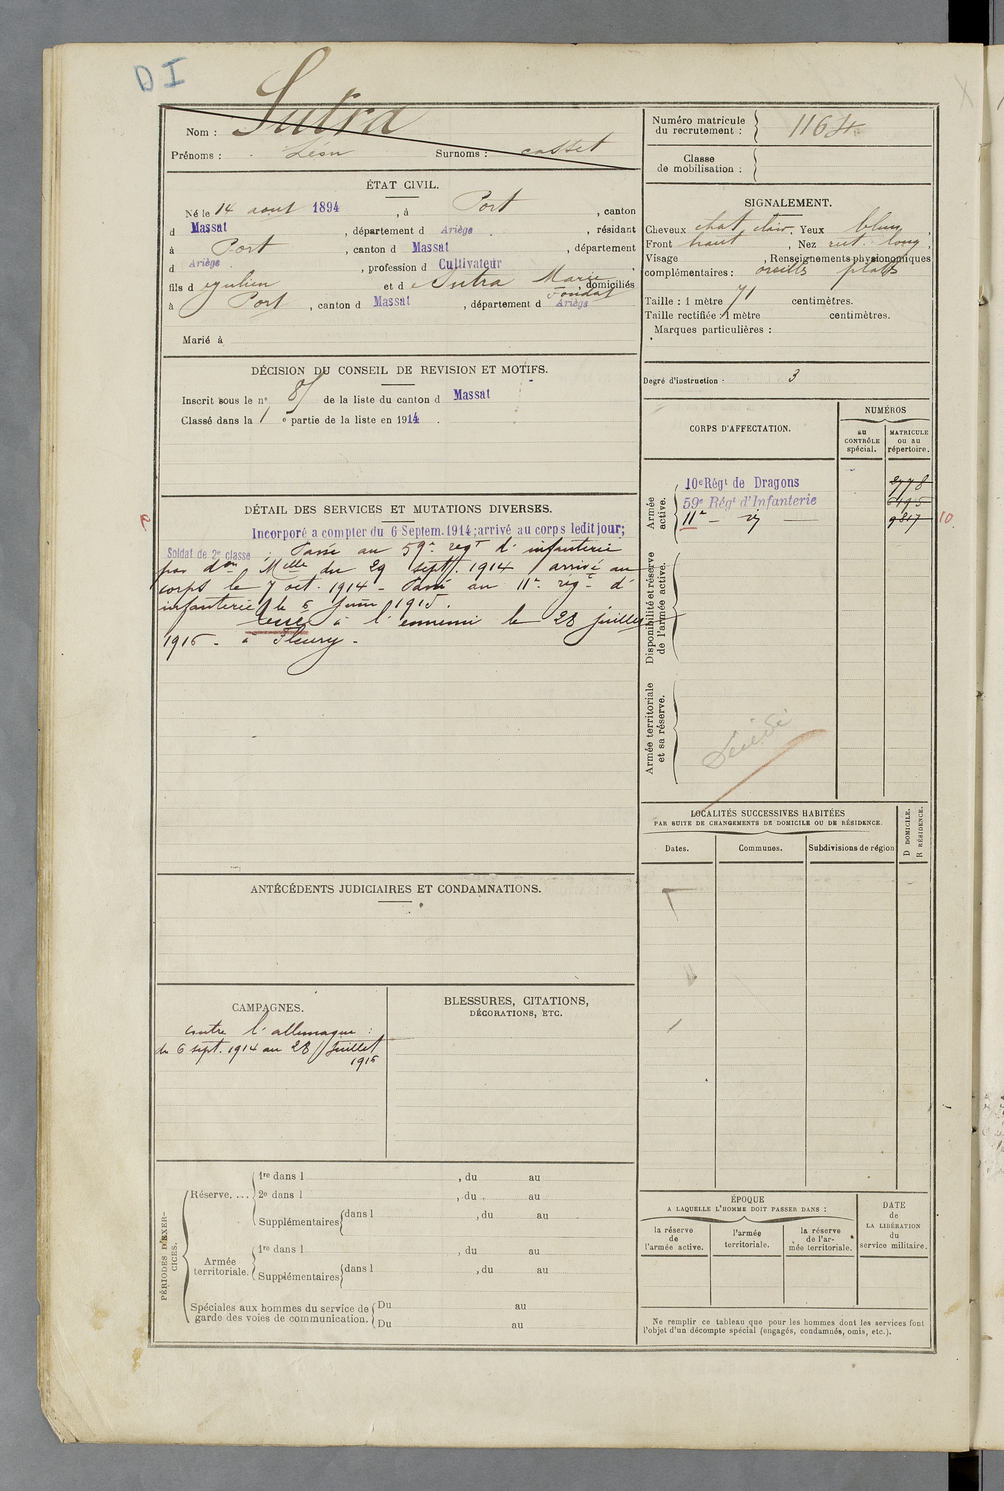 D I
Nom : Sutra
Prénoms : Léon Surnoms : casset
Numéro matricule
du recrutement :
Classe
de mobilisation :
ÉTAT CIVIL.
Né le 14 aout 1894, à Port, canton
d Massat, département d Ariège, résidant
à Port, canton d Massat, département
d Ariège, profession d Cultivateur
fils d et de Sutra Marie domiciliés
à Port, canton d Massat, département d Ariège
Marié à
SIGNALEMENT.
Cheveux chat. clair. Yeux bleus,
Front haut, Nez rect. long,
Visage , Renseignements physionomiques
complémentaires : oreilles plates
Taille : 1 mètre 71 centimètres.
Taille rectifiée : 1 mètre centimètres.
Marques particulières :
Degré d'instruction : 3
DÉCISION DU CONSEIL DE REVISION ET MOTIFS.
Inscrit sous le n° de la liste du canton d Massat
Classé dans la 1e partie de la liste en 1914.
CORPS D'AFFECTATION.
NUMÉROS
au
CONTRÔLE
spécial.
MATRICULE
ou au
répertoire.
Armée
active.
10e Régt de Dragons
59e Régt d'Infanterie
11e
10.
Disponibilité et réserve
de l'armée active.
Armée territoriale
et sa réserve.
DÉTAIL DES SERVICES ET MUTATIONS DIVERSES.
Incorporé a compter du 6 Septem. 1914; arrivé au corps ledit jour;
Soldat de 2e classe. Passé au 59e regt d'infanterie
par don Mlle du 29 sept. 1914 arrivé au
corps le 7 oct. 1914 - Passé au 11e régt d'
infanterie le 5 juin 1915.
Tué à l'ennemi le 28 juillet
1916 - à Fleury -
LOCALITÉS SUCCESSIVES HABITÉES
PAR SUITE DE CHANGEMENTS DE DOMICILE OU DE RÉSIDENCE.
Dates.
Communes.
Subdivisions de région
D DOMICILE.
R RÉSIDENCE.
ANTÉCÉDENTS JUDICIAIRES ET CONDAMNATIONS.
CAMPAGNES.
contre l'allemagne :
du 6 sept. 1914 au 28 juillet
1916
BLESSURES, CITATIONS,
DÉCORATIONS, ETC.
PÉRIODES D'EXER-
CICES.
Réserve....
1re dans l , du au
2e dans l , du au
Supplémentaires dans l , du au
Armée
territoriale.
1re dans l , du au
Supplémentaires dans l , du au
Spéciales aux hommes du service de
garde des voies de communication.
Du au
Du au
ÉPOQUE
A LAQUELLE L'HOMME DOIT PASSER DANS :
la réserve
de
l'armée active.
l'armée
territoriale.
la réserve
de l'ar-
mée territoriale.
DATE
de
LA LIBÉRATION
du
service militaire.
Ne remplir ce tableau que pour les hommes dont les services font
l'objet d'un décompte spécial (engagés, condamnés, omis, etc.).